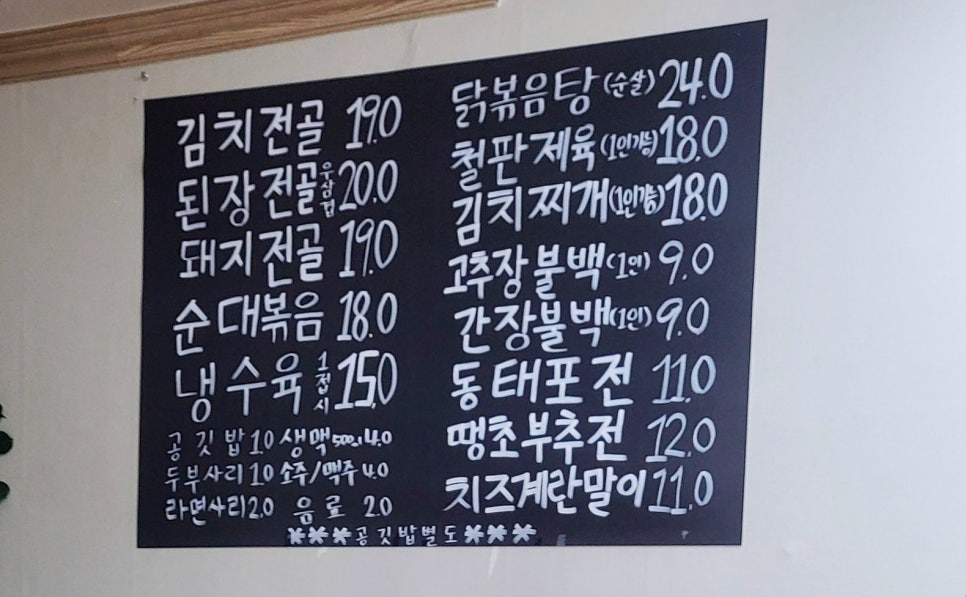 김치전골 19.0
된장전골 우삼겹 20.0
돼지전골 19.0
순대볶음 18.0
냉수육 1접시 15.0
공깃밥 1.0 생맥 500ml 4.0
두부사리 1.0 소주/맥주 4.0
라면사리 2.0 음료 2.0
닭볶음탕 (순살) 24.0
철판제육 (1인가능) 18.0
김치찌개 (1인가능) 18.0
고추장불백 (1인) 9.0
간장불백 (1인) 9.0
동태포전 11.0
땡초부추전 12.0
치즈계란말이 11.0
***공깃밥별도***